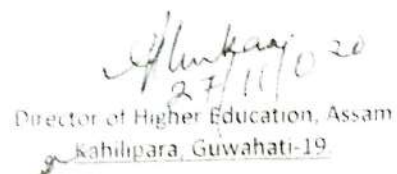 27/11/020
Director of Higher Education, Assam
Kahilipara, Guwahati-19